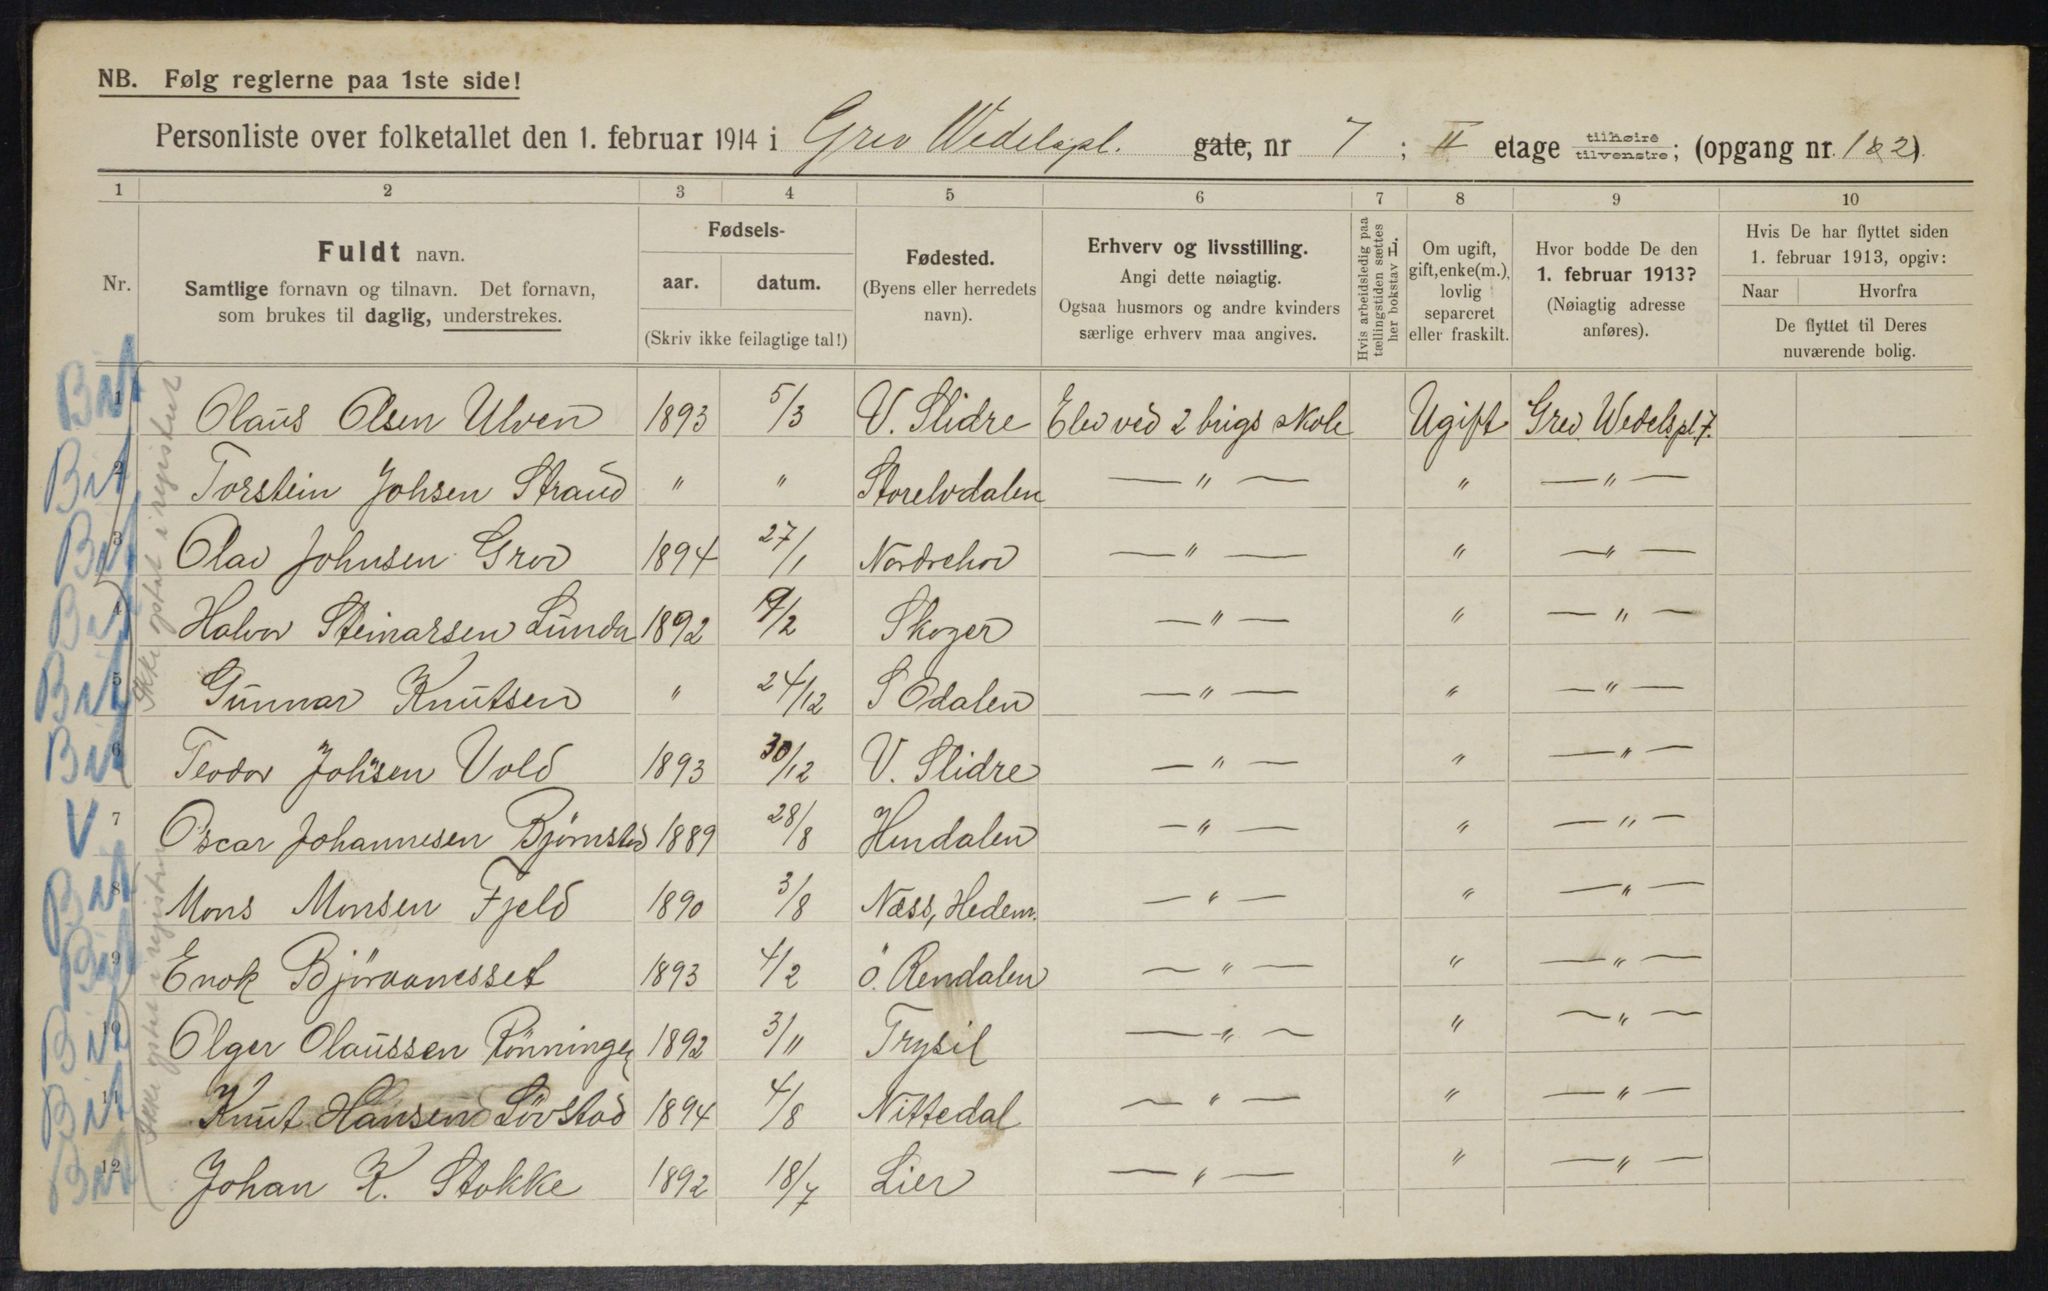 NB. Følg reglerne paa 1ste side!
Personliste over folketallet den 1. februar 1914 i Grev Wedelspl. gate, nr 7 ; II etage tilhøire tilvenstre; (opgang nr. 1 & 2)
1 2 3 4 5 6 7 8 9 10
Nr.
Fuldt navn.
Samtlige fornavn og tilnavn. Det fornavn,
som brukes til daglig, understrekes.
Fødsels-
aar. datum.
(Skriv ikke feilagtige tal!)
Fødested.
(Byens eller herredets
navn).
Erhverv og livsstilling.
Angi dette nøiagtig.
Ogsaa husmors og andre kvinders
særlige erhverv maa angives.
Hvis arbeidsledig paa
tællingstiden sættes
her bokstav L.
Om ugift,
gift, enke(m.),
lovlig
separeret
eller fraskilt.
Hvor bodde De den
1. februar 1913?
(Nøiagtig adresse
anføres).
Hvis De har flyttet siden
1. februar 1913, opgiv:
Naar Hvorfra
De flyttet til Deres
nuværende bolig.
1 Olaus Olsen Ulven 1893 5/3 V. Slidre Elev ved 2 brigs skole Ugift Grev Wedelspl. 7.
2 Torstein Johsen Strand " " Storelvdalen — " — " — " —
3 Olav Johnsen Grov 1894 27/1 Norderhov — " — " — " —
4 Halvor Steinarsen Lunda 1892 9/2 Skoger — " — " — " —
5 Gunnar Knutsen " 24/12 S Odalen — " — " — " —
6 Teodor Johsen Vold 1893 30/12 V. Slidre — " — " — " —
V 7 Oscar Johannesen Björnstad 1889 28/8 — " — " — " —
8 Mons Monsen Fjeld 1890 3/8 Næss, Hedem. — " — " — " —
9 Enok Björaanesset 1893 4/2 Ö. Rendalen — " — " — " —
10 Olger Olaussen Rönningen 1892 3/11 Trysil — " — " — " —
11 Knut Hansen Lövstad 1894 4/8 Nittedal — " — " — " —
12 Johan K. Stokke 1892 18/7 Lier — " — " — " —
Ikke optat i registret
Ikke optat i registret